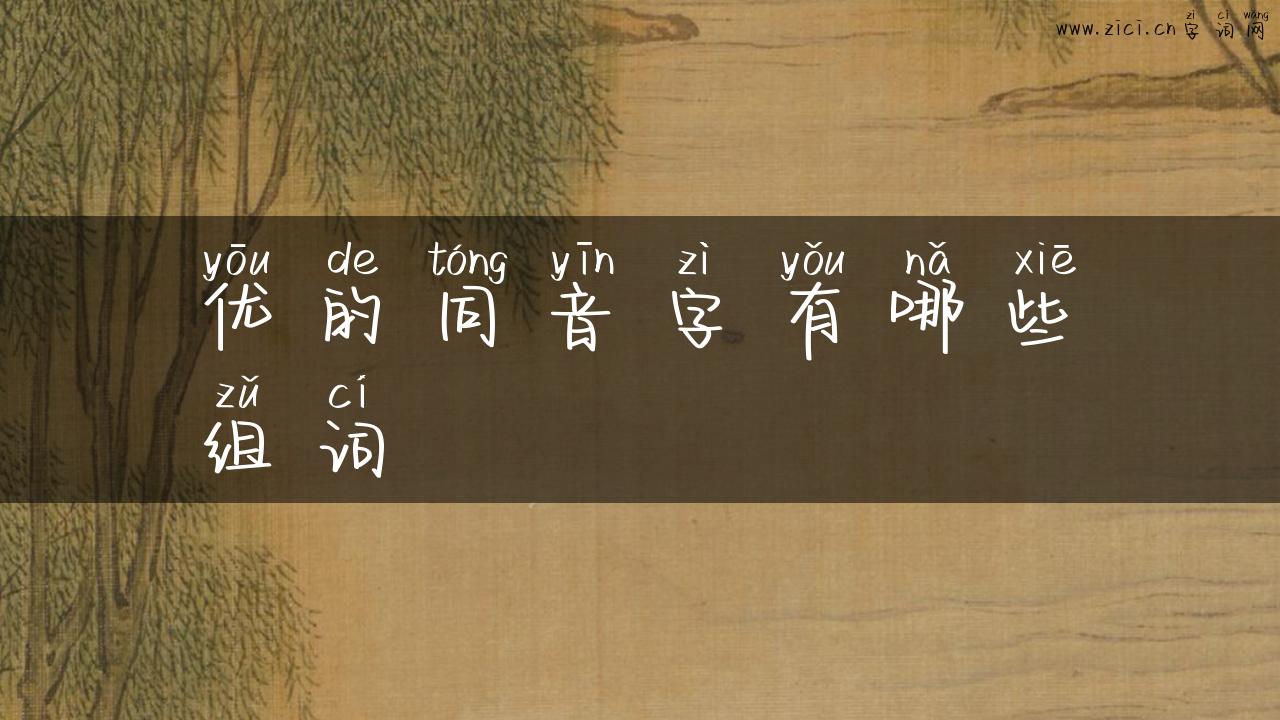 zì cí wǎng
www.zici.cn 字词网
yōu de tóng yīn zì yǒu nǎ xiē
优的同音字有哪些
zǔ cí
组词